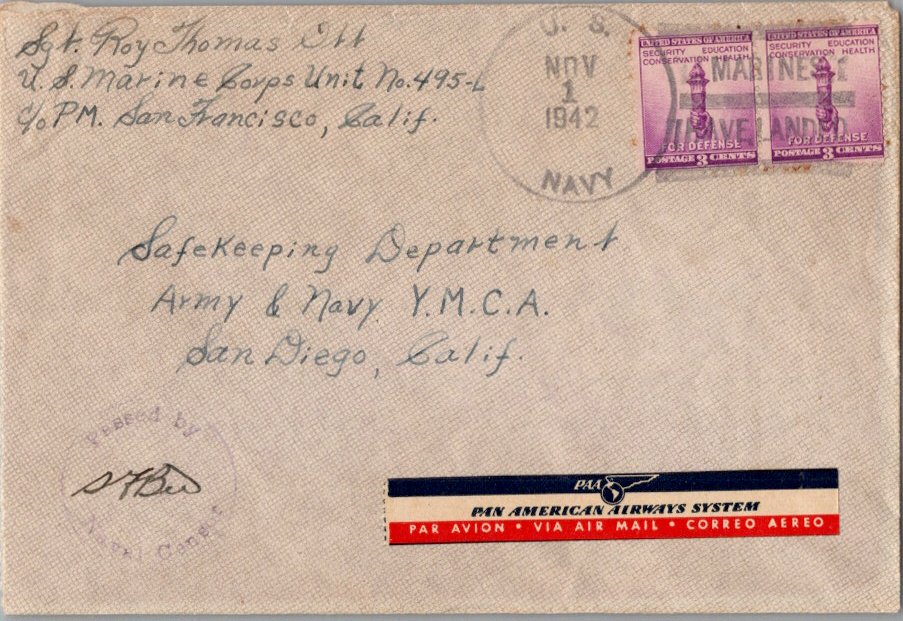 Sgt. Roy Thomas Ott
U. S. Marine Corps Unit No. 495-L
c/o P.M. San Francisco, Calif.
U. S.
NOV
1
1942
NAVY
MARINES
HAVE LANDED
UNITED STATES OF AMERICA
SECURITY EDUCATION
CONSERVATION HEALTH
FOR DEFENSE
POSTAGE 3 CENTS
UNITED STATES OF AMERICA
SECURITY EDUCATION
CONSERVATION HEALTH
FOR DEFENSE
POSTAGE 3 CENTS
Safekeeping Department
Army & Navy Y.M.C.A.
San Diego, Calif.
Passed by
Naval Censor
PAA
PAN AMERICAN AIRWAYS SYSTEM
PAR AVION • VIA AIR MAIL • CORREO AEREO